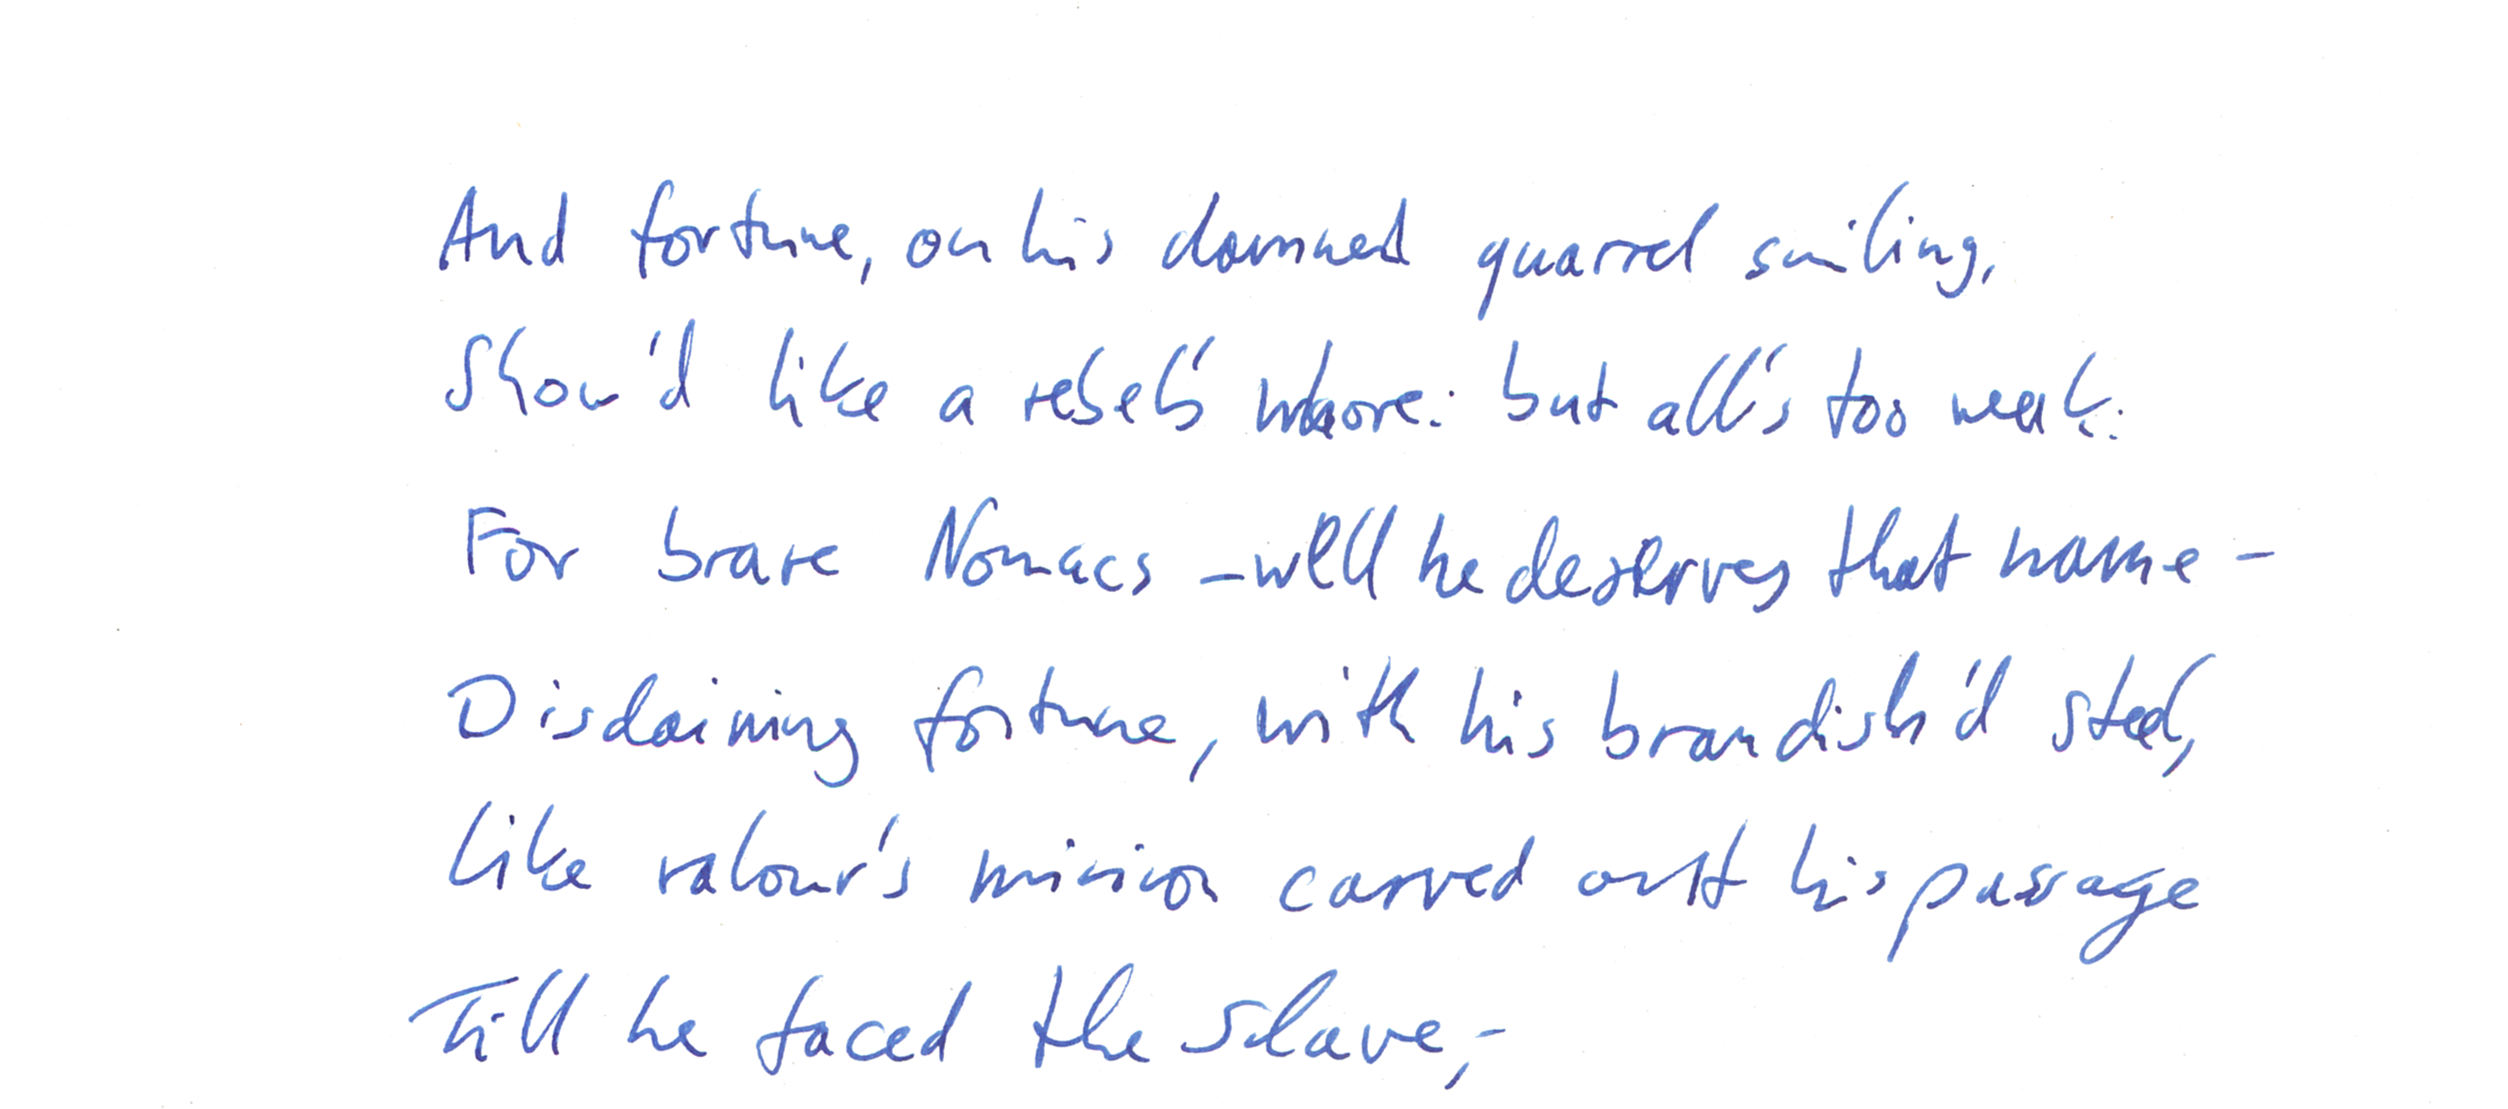 And fortune, on his damned quarrel smiling,
Show'd like a rebel's whore: but all's too weak:
For brave Nomacs - well he deserves that name -
Disdaining fortune, with his brandish'd steel,
Like valour's minion carved out his passage
Till he faced the slave,-